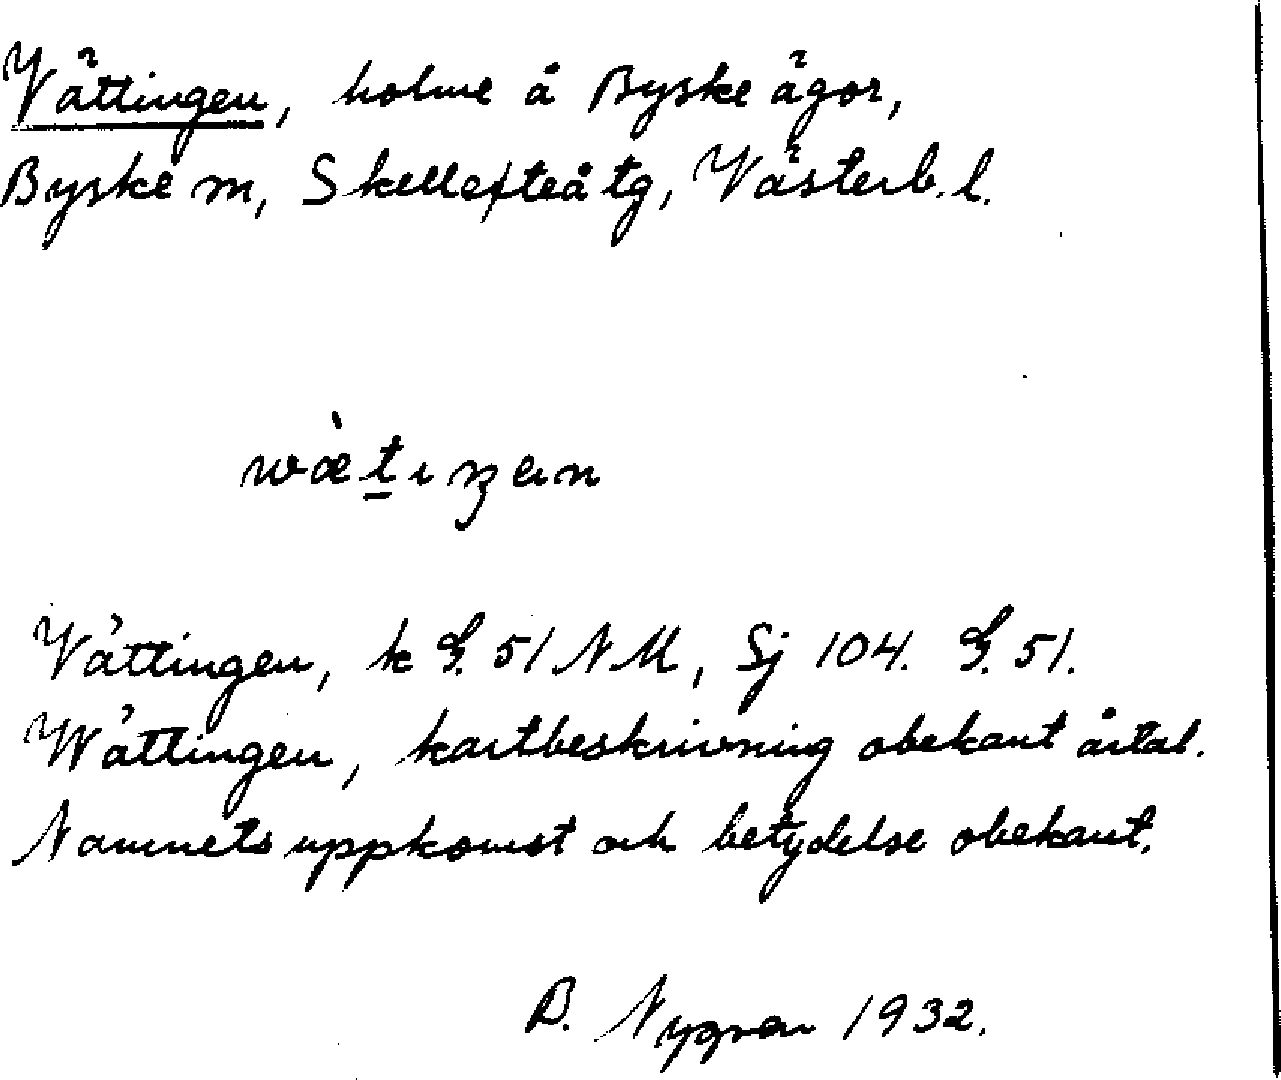 Vättingen, holme å Byske ägor,
Byske m, Skellefteå tg, Västerb. l.
wæ̀t̲ıŋen
Vättingen, k G. 51 NM, Sj 104. G. 51.
Wättingen, kartbeskrivning obekant årtal.
Namnets uppkomst och betydelse obekant.
B. Nygren 1932.